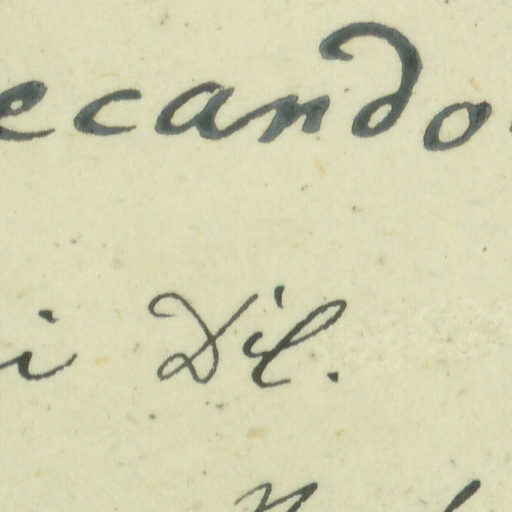 ecando
i Dil.